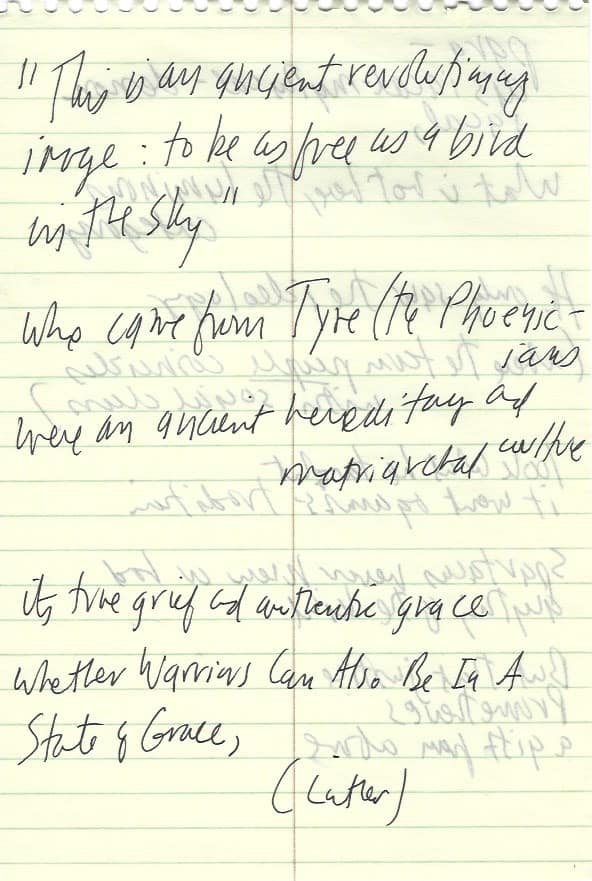 "This is an ancient revolutionary
image : to be as free as a bird
in the sky"
who came from Tyre (the Phoenic-
ians
were an ancient hereditary and
matriarchal culture
its true grief and authentic grace
whether Warriors Can Also Be In A
State of Grace,
(Luther)